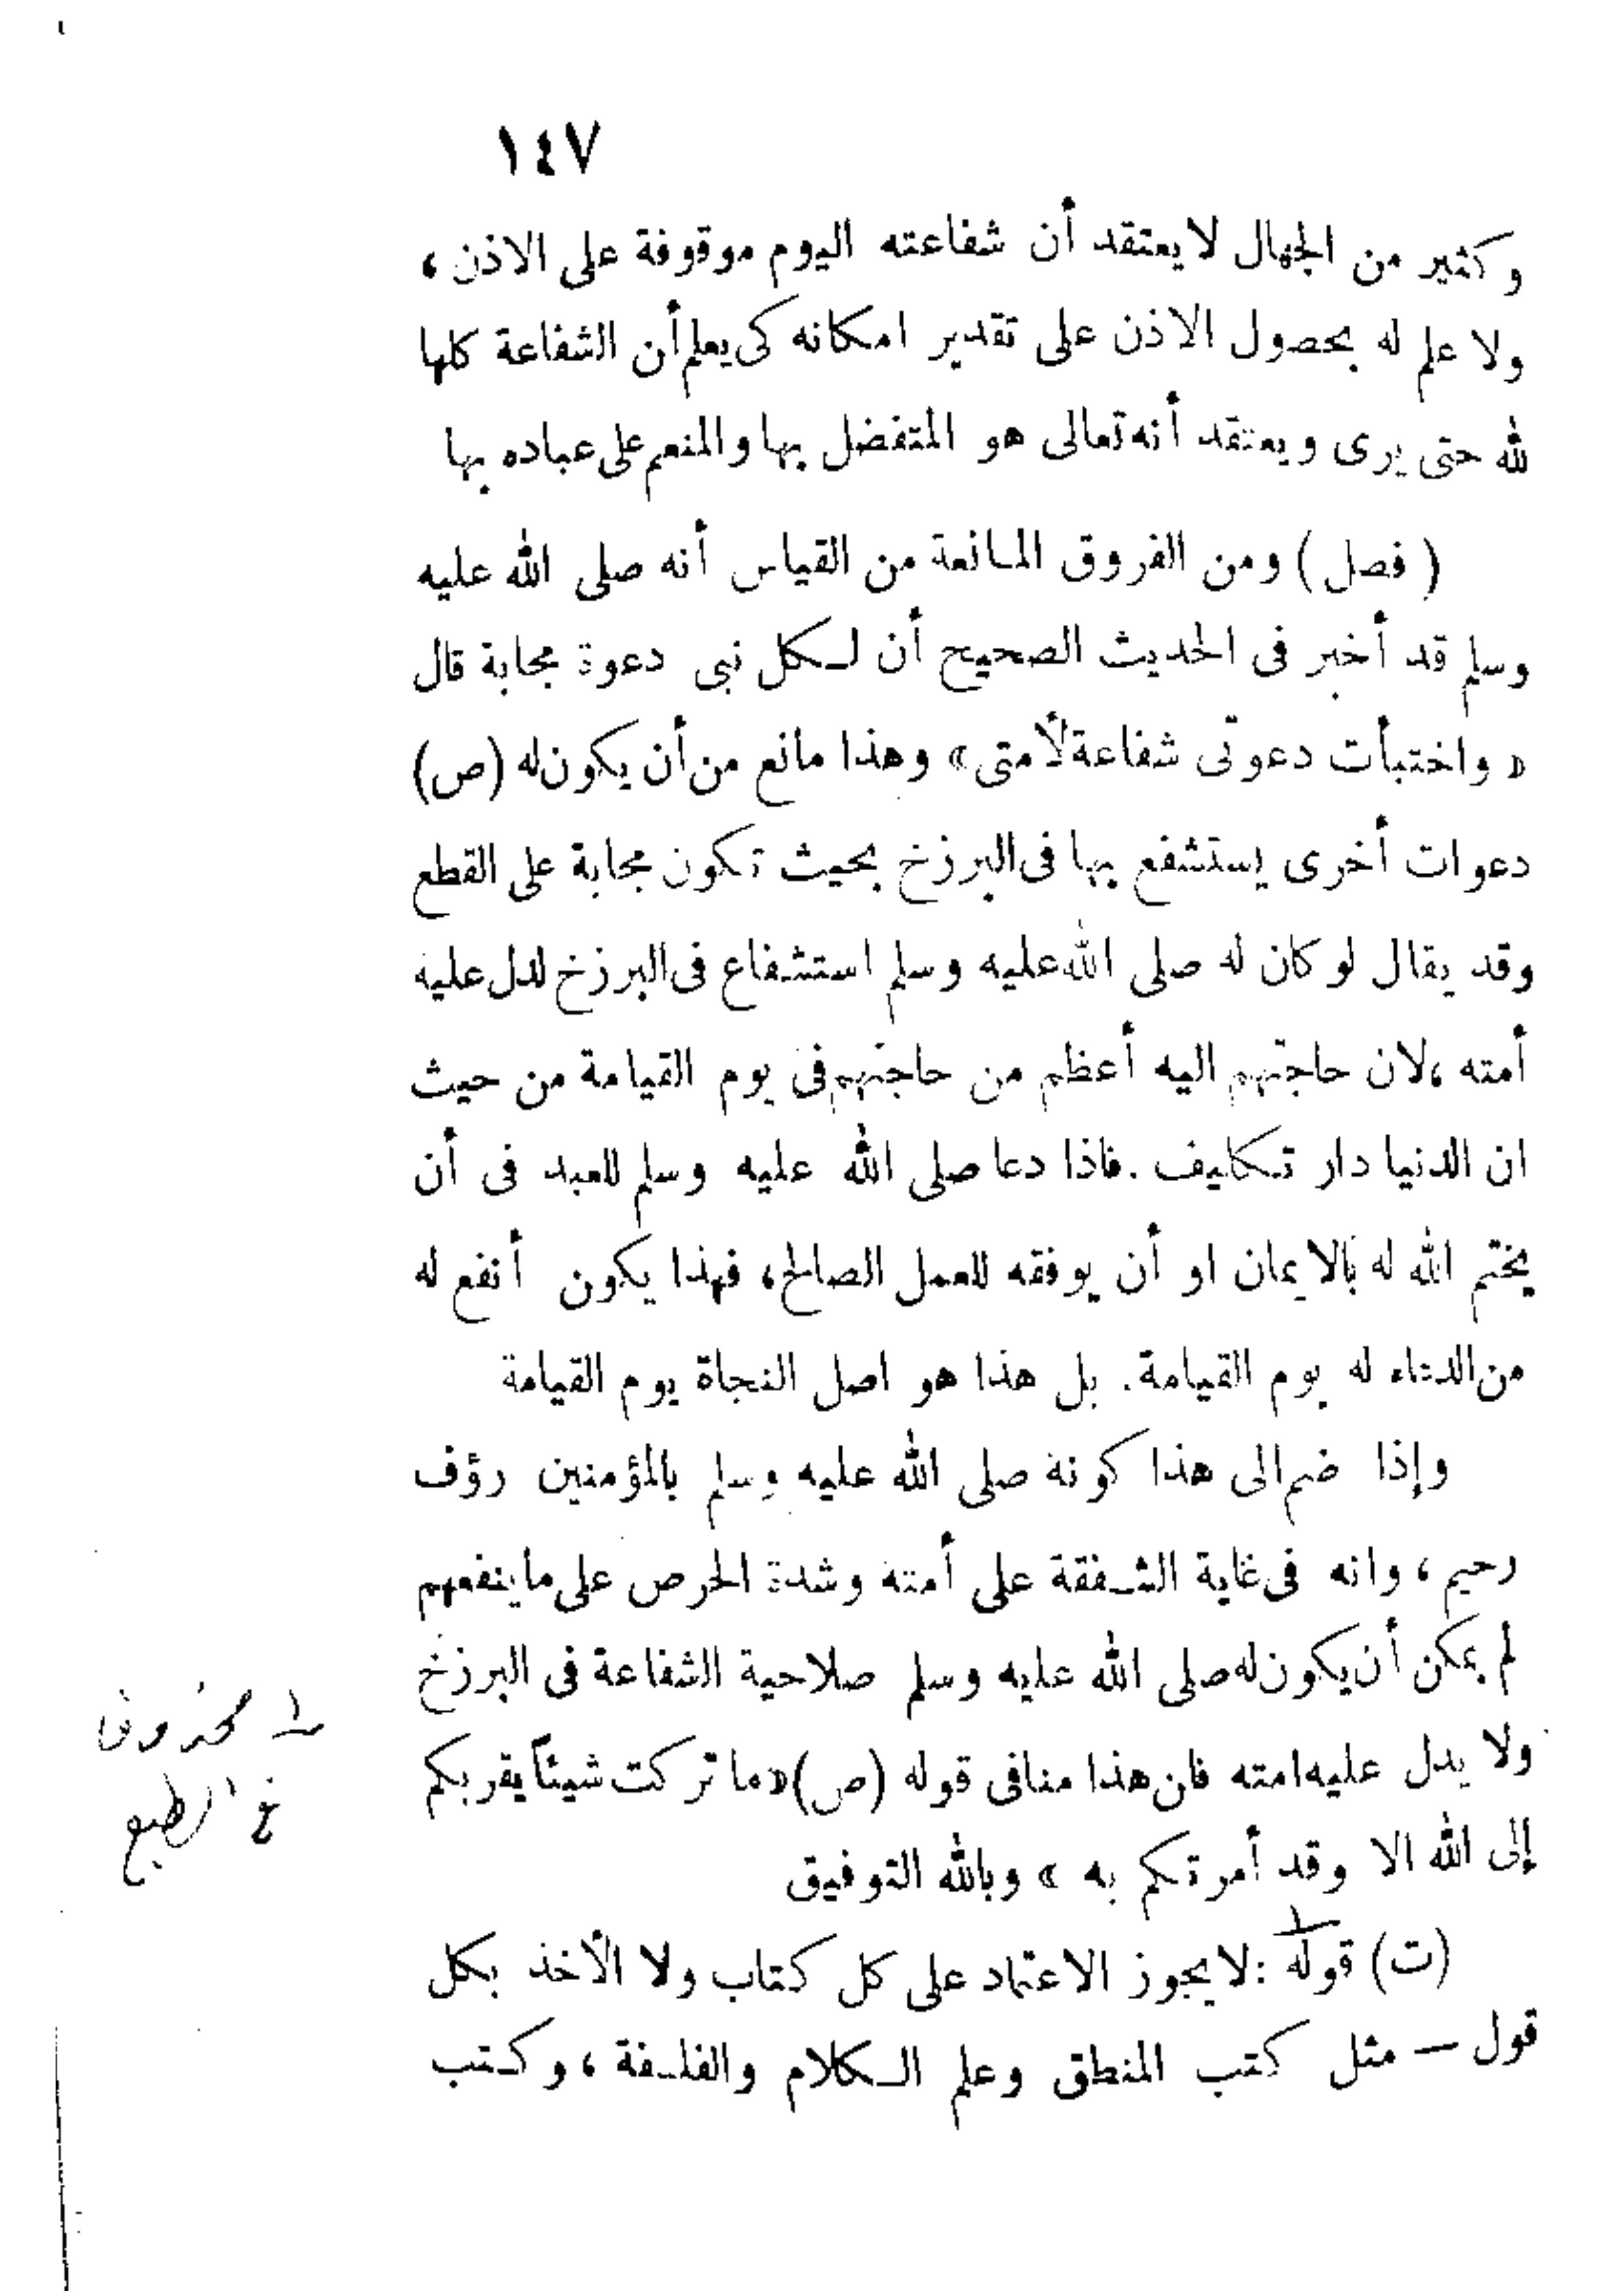 ١٤٧
وكثير من الجهال لا يعتقد أن شفاعته اليوم موقوفة على الاذن ،
ولا علم له بحصول الاذن على تقدير امكانه كى يعلم أن الشفاعة كلها
لله حتى يرى ويعتقد أنه تعالى هو المتفضل بها والمنعم على عباده بها
( فصل ) ومن الفروق المانعة من القياس أنه صلى الله عليه
وسلم قد أخبر فى الحديث الصحيح أن لكل نبى دعوة مجابة قال
« واختبأت دعوتى شفاعة لأمتى » وهذا مانع من أن يكون له (ص)
دعوات أخرى يستشفع بها فى البرزخ بحيث تكون مجابة على القطع
وقد يقال لو كان له صلى الله عليه وسلم استشفاع فى البرزخ لدل عليه
أمته ، لان حاجتهم اليه أعظم من حاجتهم فى يوم القيامة من حيث
ان الدنيا دار تكليف . فاذا دعا صلى الله عليه وسلم للعبد فى أن
يختم الله له بالايمان او أن يوفقه للعمل الصالح ، فهذا يكون أنفع له
من الدعاء له يوم القيامة . بل هذا هو اصل النجاة يوم القيامة
وإذا ضم الى هذا كونه صلى الله عليه وسلم بالمؤمنين رؤف
رحيم ، وانه فى غاية الشفقة على أمته وشدة الحرص على ما ينفعهم
لم يمكن أن يكون له صلى الله عليه وسلم صلاحية الشفاعة فى البرزخ
ولا يدل عليه امته فان هذا منافى قوله (ص) « ما تركت شيئاً يقربكم
إلى الله الا وقد أمرتكم به » وبالله التوفيق
(ت) قوله : لا يجوز الاعتماد على كل كتاب ولا الأخذ بكل
قول — مثل كتب المنطق وعلم الكلام والفلسفة ، وكتب
الطبع